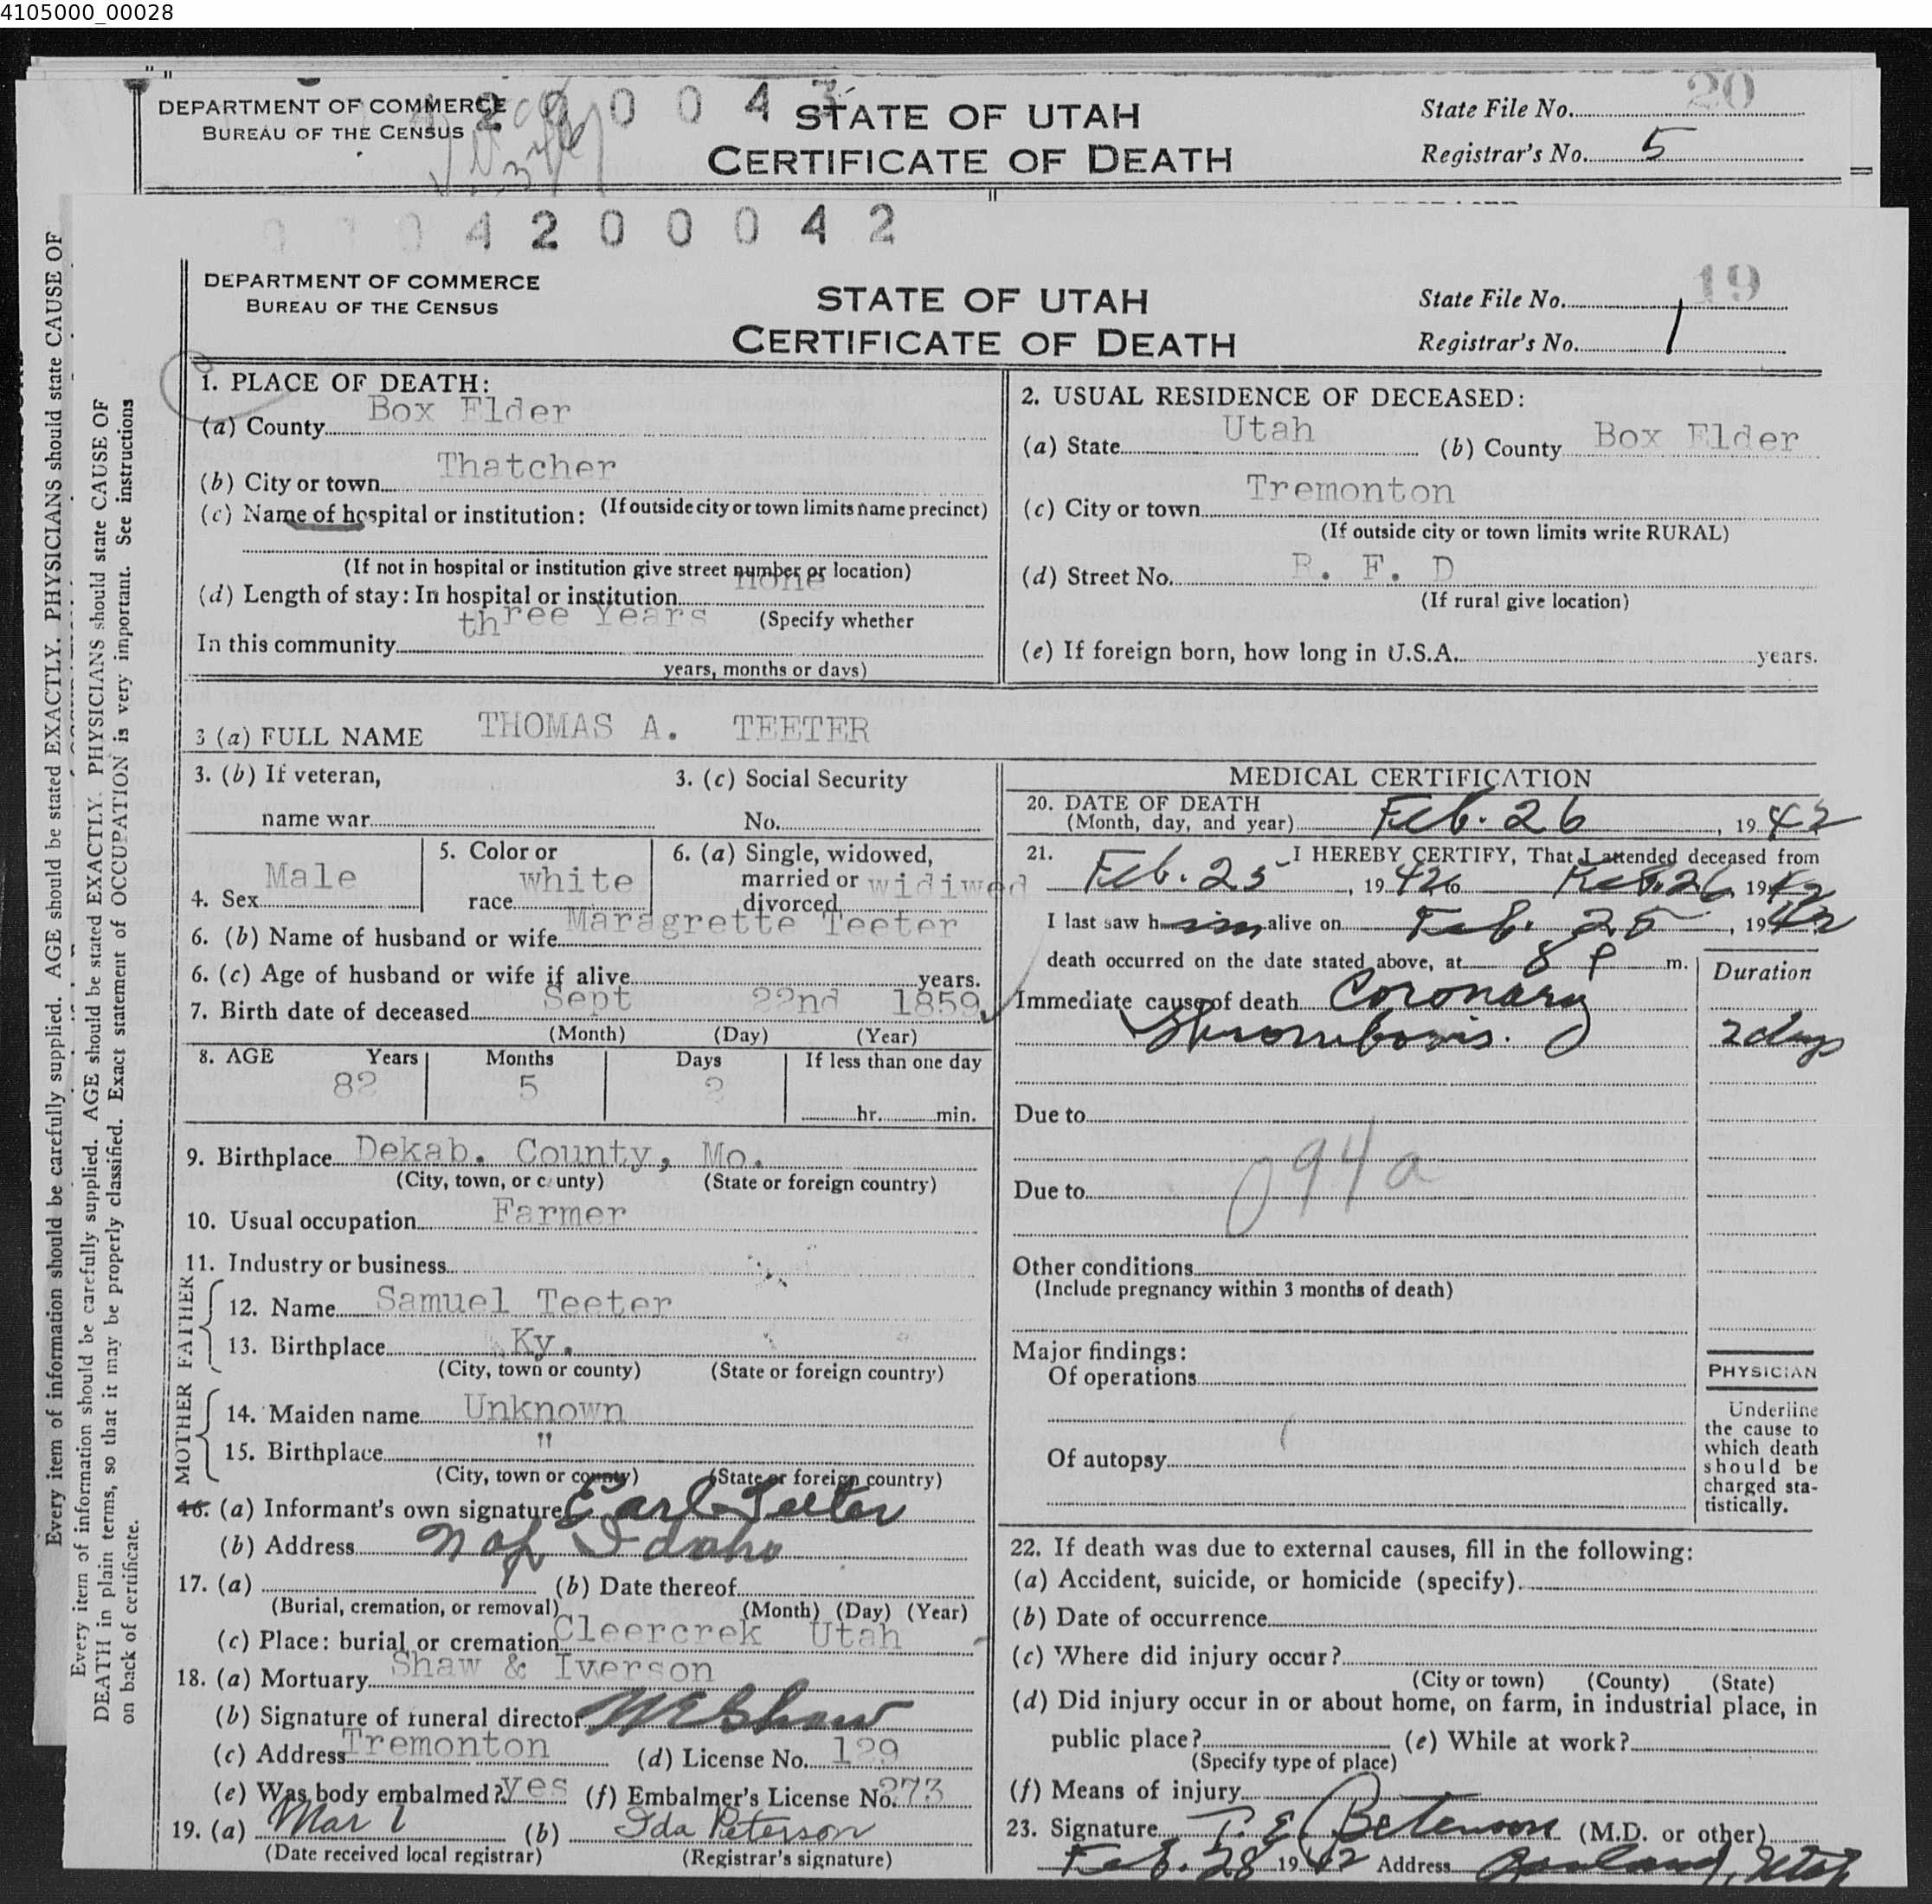 4105000_00028
DEPARTMENT OF COMMERCE
BUREAU OF THE CENSUS
2 0 0 0 4 3
STATE OF UTAH
CERTIFICATE OF DEATH
State File No. 20
Registrar's No. 5
0 0 0 4 2 0 0 0 4 2
DEPARTMENT OF COMMERCE
BUREAU OF THE CENSUS
STATE OF UTAH
CERTIFICATE OF DEATH
State File No. 19
Registrar's No. 1
Every item of information should be carefully supplied. AGE should be stated EXACTLY. PHYSICIANS should state CAUSE OF
Every item of information should be carefully supplied. AGE should be stated EXACTLY. PHYSICIANS should state CAUSE OF
DEATH in plain terms, so that it may be properly classified. Exact statement of OCCUPATION is very important. See instructions
on back of certificate.
1. PLACE OF DEATH:
(a) County Box Elder
(b) City or town Thatcher
(c) Name of hospital or institution: (If outside city or town limits name precinct)
(If not in hospital or institution give street number or location)
(d) Length of stay: In hospital or institution none
(Specify whether
In this community three Years
years, months or days)
2. USUAL RESIDENCE OF DECEASED:
(a) State Utah (b) County Box Elder
(c) City or town Tremonton
(If outside city or town limits write RURAL)
(d) Street No. R. F. D
(If rural give location)
(e) If foreign born, how long in U.S.A. years.
3 (a) FULL NAME THOMAS A. TEETER
3. (b) If veteran,
name war
3. (c) Social Security
No.
4. Sex Male
5. Color or
race white
6. (a) Single, widowed,
married or
divorced widiwed
6. (b) Name of husband or wife Maragrette Teeter
6. (c) Age of husband or wife if alive years.
7. Birth date of deceased Sept 22nd 1859
(Month) (Day) (Year)
8. AGE Years Months Days If less than one day
82 5 2 hr. min.
9. Birthplace Dekab. County, Mo.
(City, town, or county) (State or foreign country)
10. Usual occupation Farmer
11. Industry or business
FATHER
12. Name Samuel Teeter
13. Birthplace Ky.
(City, town or county) (State or foreign country)
MOTHER
14. Maiden name Unknown
15. Birthplace "
(City, town or county) (State or foreign country)
16. (a) Informant's own signature Earl Teeter
(b) Address Naf Idaho
17. (a) (b) Date thereof
(Burial, cremation, or removal) (Month) (Day) (Year)
(c) Place: burial or cremation Cleercrek Utah
18. (a) Mortuary Shaw & Iverson
(b) Signature of funeral director W E Shaw
(c) Address Tremonton (d) License No. 129
(e) Was body embalmed? Yes (f) Embalmer's License No. 273
19. (a) Mar 1 (b) Ida Peterson
(Date received local registrar) (Registrar's signature)
MEDICAL CERTIFICATION
20. DATE OF DEATH
(Month, day, and year) Feb. 26, 1942
21. I HEREBY CERTIFY, That I attended deceased from
Feb. 25, 1942 to Feb. 26, 1942
I last saw him alive on Feb. 25, 1942
death occurred on the date stated above, at 8 P m.
Duration
Immediate cause of death Coronary
Thrombosis. 2 days
Due to
094a
Due to
Other conditions
(Include pregnancy within 3 months of death)
Major findings:
Of operations
Of autopsy
PHYSICIAN
Underline
the cause to
which death
should be
charged sta-
tistically.
22. If death was due to external causes, fill in the following:
(a) Accident, suicide, or homicide (specify)
(b) Date of occurrence
(c) Where did injury occur?
(City or town) (County) (State)
(d) Did injury occur in or about home, on farm, in industrial place, in
public place? (e) While at work?
(Specify type of place)
(f) Means of injury
23. Signature T. E. Betenson (M.D. or other)
Feb. 28 1942 Address Garland, Utah